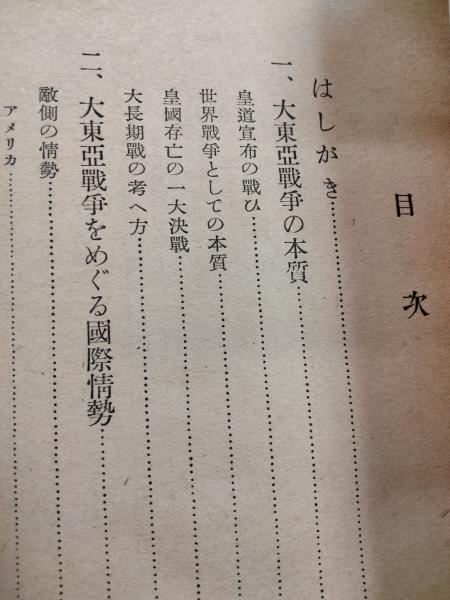 目次
はしがき
一、大東亞戰爭の本質
皇道宣布の戰ひ
世界戰爭としての本質
皇國存亡の一大決戰
大長期戰の考へ方
二、大東亞戰爭をめぐる國際情勢
敵側の情勢
アメリカ